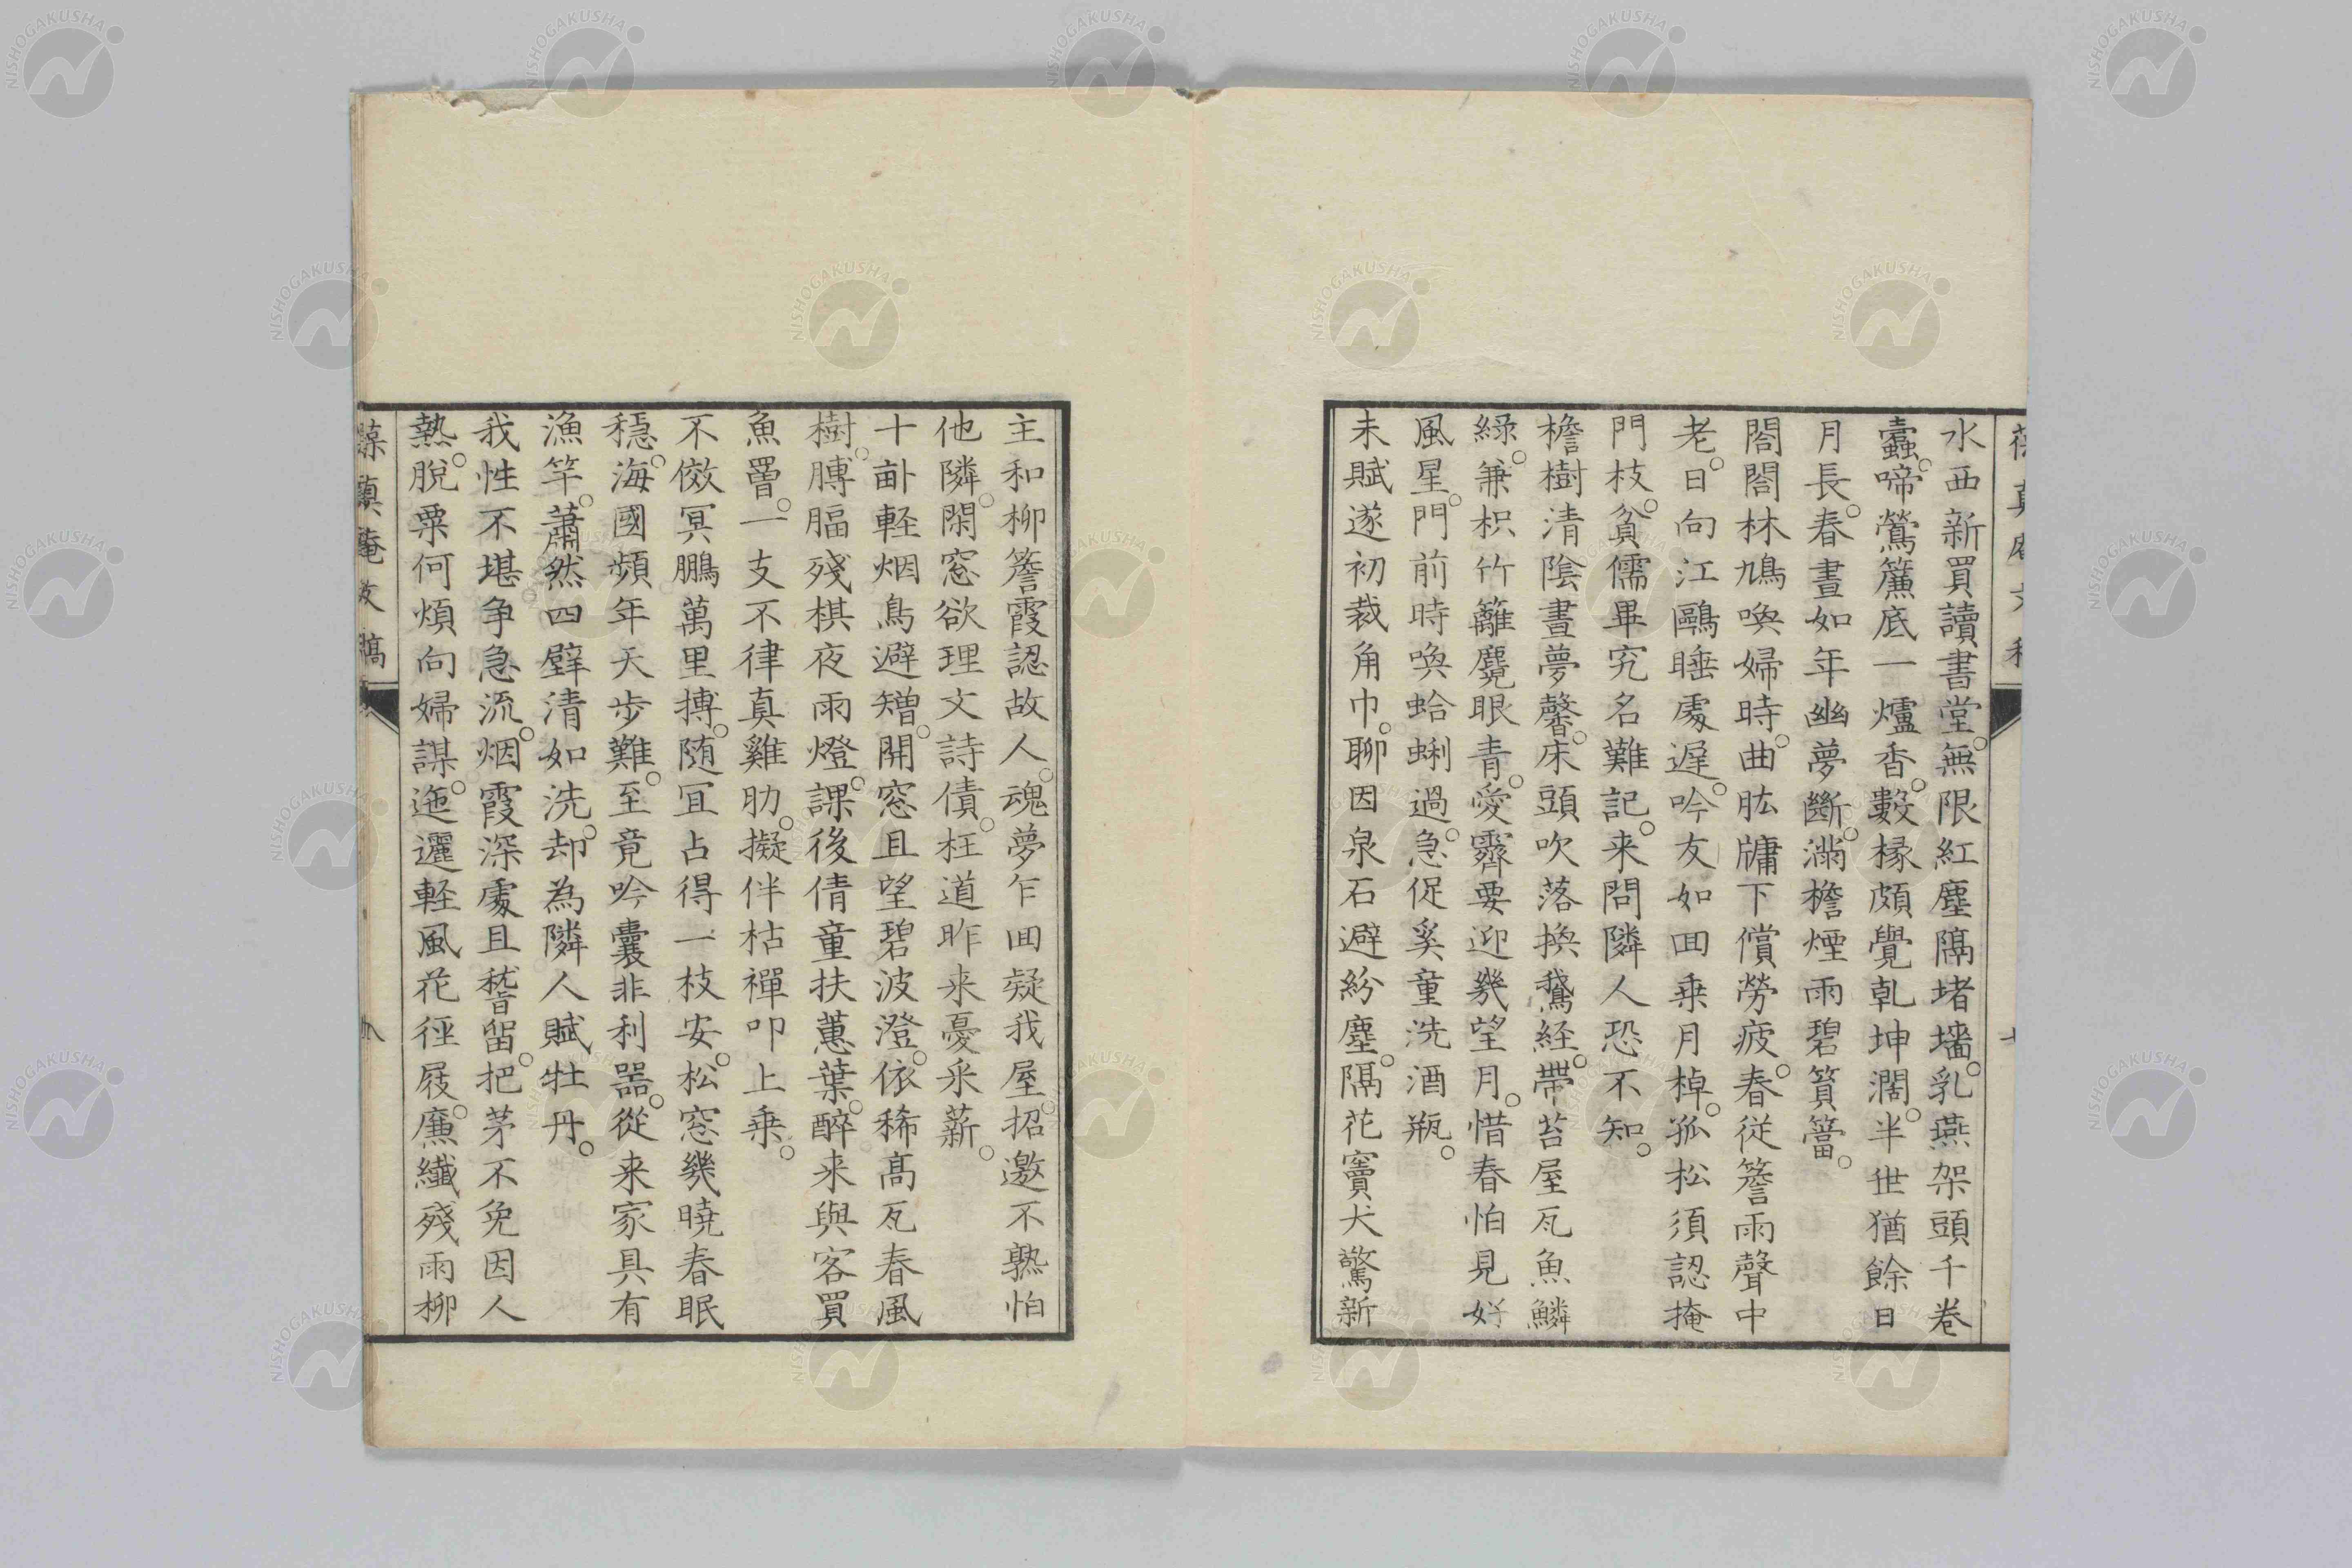 水西新買讀書堂。無限紅塵隔堵墻。乳燕架頭千卷
蠹。啼鶯簾底一爐香。數椽頗覺乾坤濶。半世猶餘日
月長。春晝如年幽夢斷。滿檐煙雨碧篔簹。
閤閤林鳩喚婦時。曲肱牗下償勞疲。春從簷雨聲中
老。日向江鷗睡處遲。吟友如囬乗月棹。孤松須認掩
門枝。貧儒畢究名難記。来問隣人恐不知。
檐樹清陰晝夢馨。床頭吹落換鵞経。帶苔屋瓦魚鱗
緑。兼枳竹籬麂眼青。愛霽要迎幾望月。惜春怕見好
風星。門前時喚蛤蜊過。急促奚童洗酒瓶。
未賦遂初裁角巾。聊因泉石避紛塵。隔花竇犬驚新
主和柳簷霞認故人。魂夢乍囬疑我屋。招邀不熟怕
他隣。閑窓欲理文詩債。枉道昨来憂釆薪。
十畝軽烟鳥避矰。開窓且望碧波澄。依稀髙瓦春風
樹。膊腷殘棋夜雨燈。課後倩童扶蕙葉。醉来與客買
魚罾。一支不律真雞肋。擬伴枯禪叩上乗。
不傚冥鵬萬里摶。随冝占得一枝安。松窓幾曉春眠
穏。海國頻年天步難。至竟吟囊非利噐。從来家具有
漁竿。蕭然四壁清如洗。却為隣人賦牡丹。
我性不堪争急流。烟霞深處且𥡴留。把茅不免因人
熱。脫粟何煩向婦謀。迤邐軽風花徑屐。廉纖殘雨柳
葆真庵文稿
八
NISHOGAKUSHA